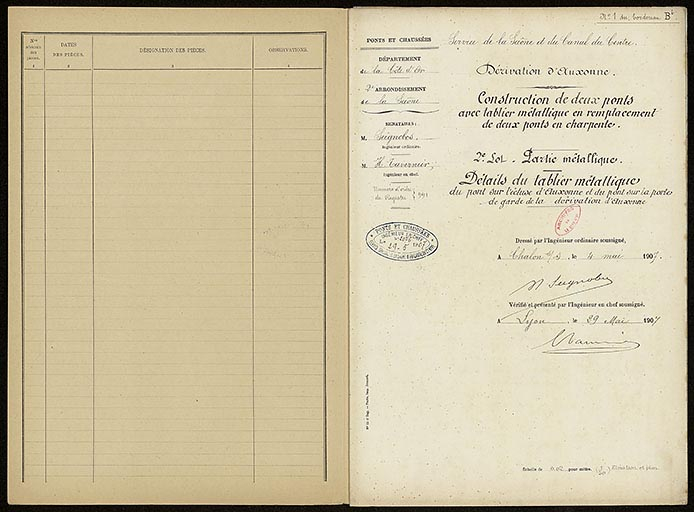 DATES
DES PIÈCES.
DÉSIGNATION DES PIÈCES.
OBSERVATIONS.
1
2
3
4
N° 1 du bordereau B
PONTS ET CHAUSSÉES
DÉPARTEMENT
de la Côte d'Or
2e ARRONDISSEMENT
de la Saône
SIGNATAIRES :
M. Seignobos.
Ingénieur ordinaire.
M. H. Tavernier,
Ingénieur en chef.
Numéro d'ordre
du Registre
PONTS ET CHAUSSÉES
Service de la Saône et du Canal du Centre.
Dérivation d'Auxonne.
Construction de deux ponts
avec tablier métallique en remplacement
de deux ponts en charpente.
2e Lot - Partie métallique.
Détails du tablier métallique
du pont sur l'écluse d'Auxonne et du pont sur la porte
de garde de la dérivation d'Auxonne
Dressé par l'Ingénieur ordinaire soussigné,
A Chalon s/S, le 4 mai 1907.
Vérifié et présenté par l'Ingénieur en chef soussigné,
A Lyon, le 29 Mai 1907
Echelle de 0.02 pour mètre.